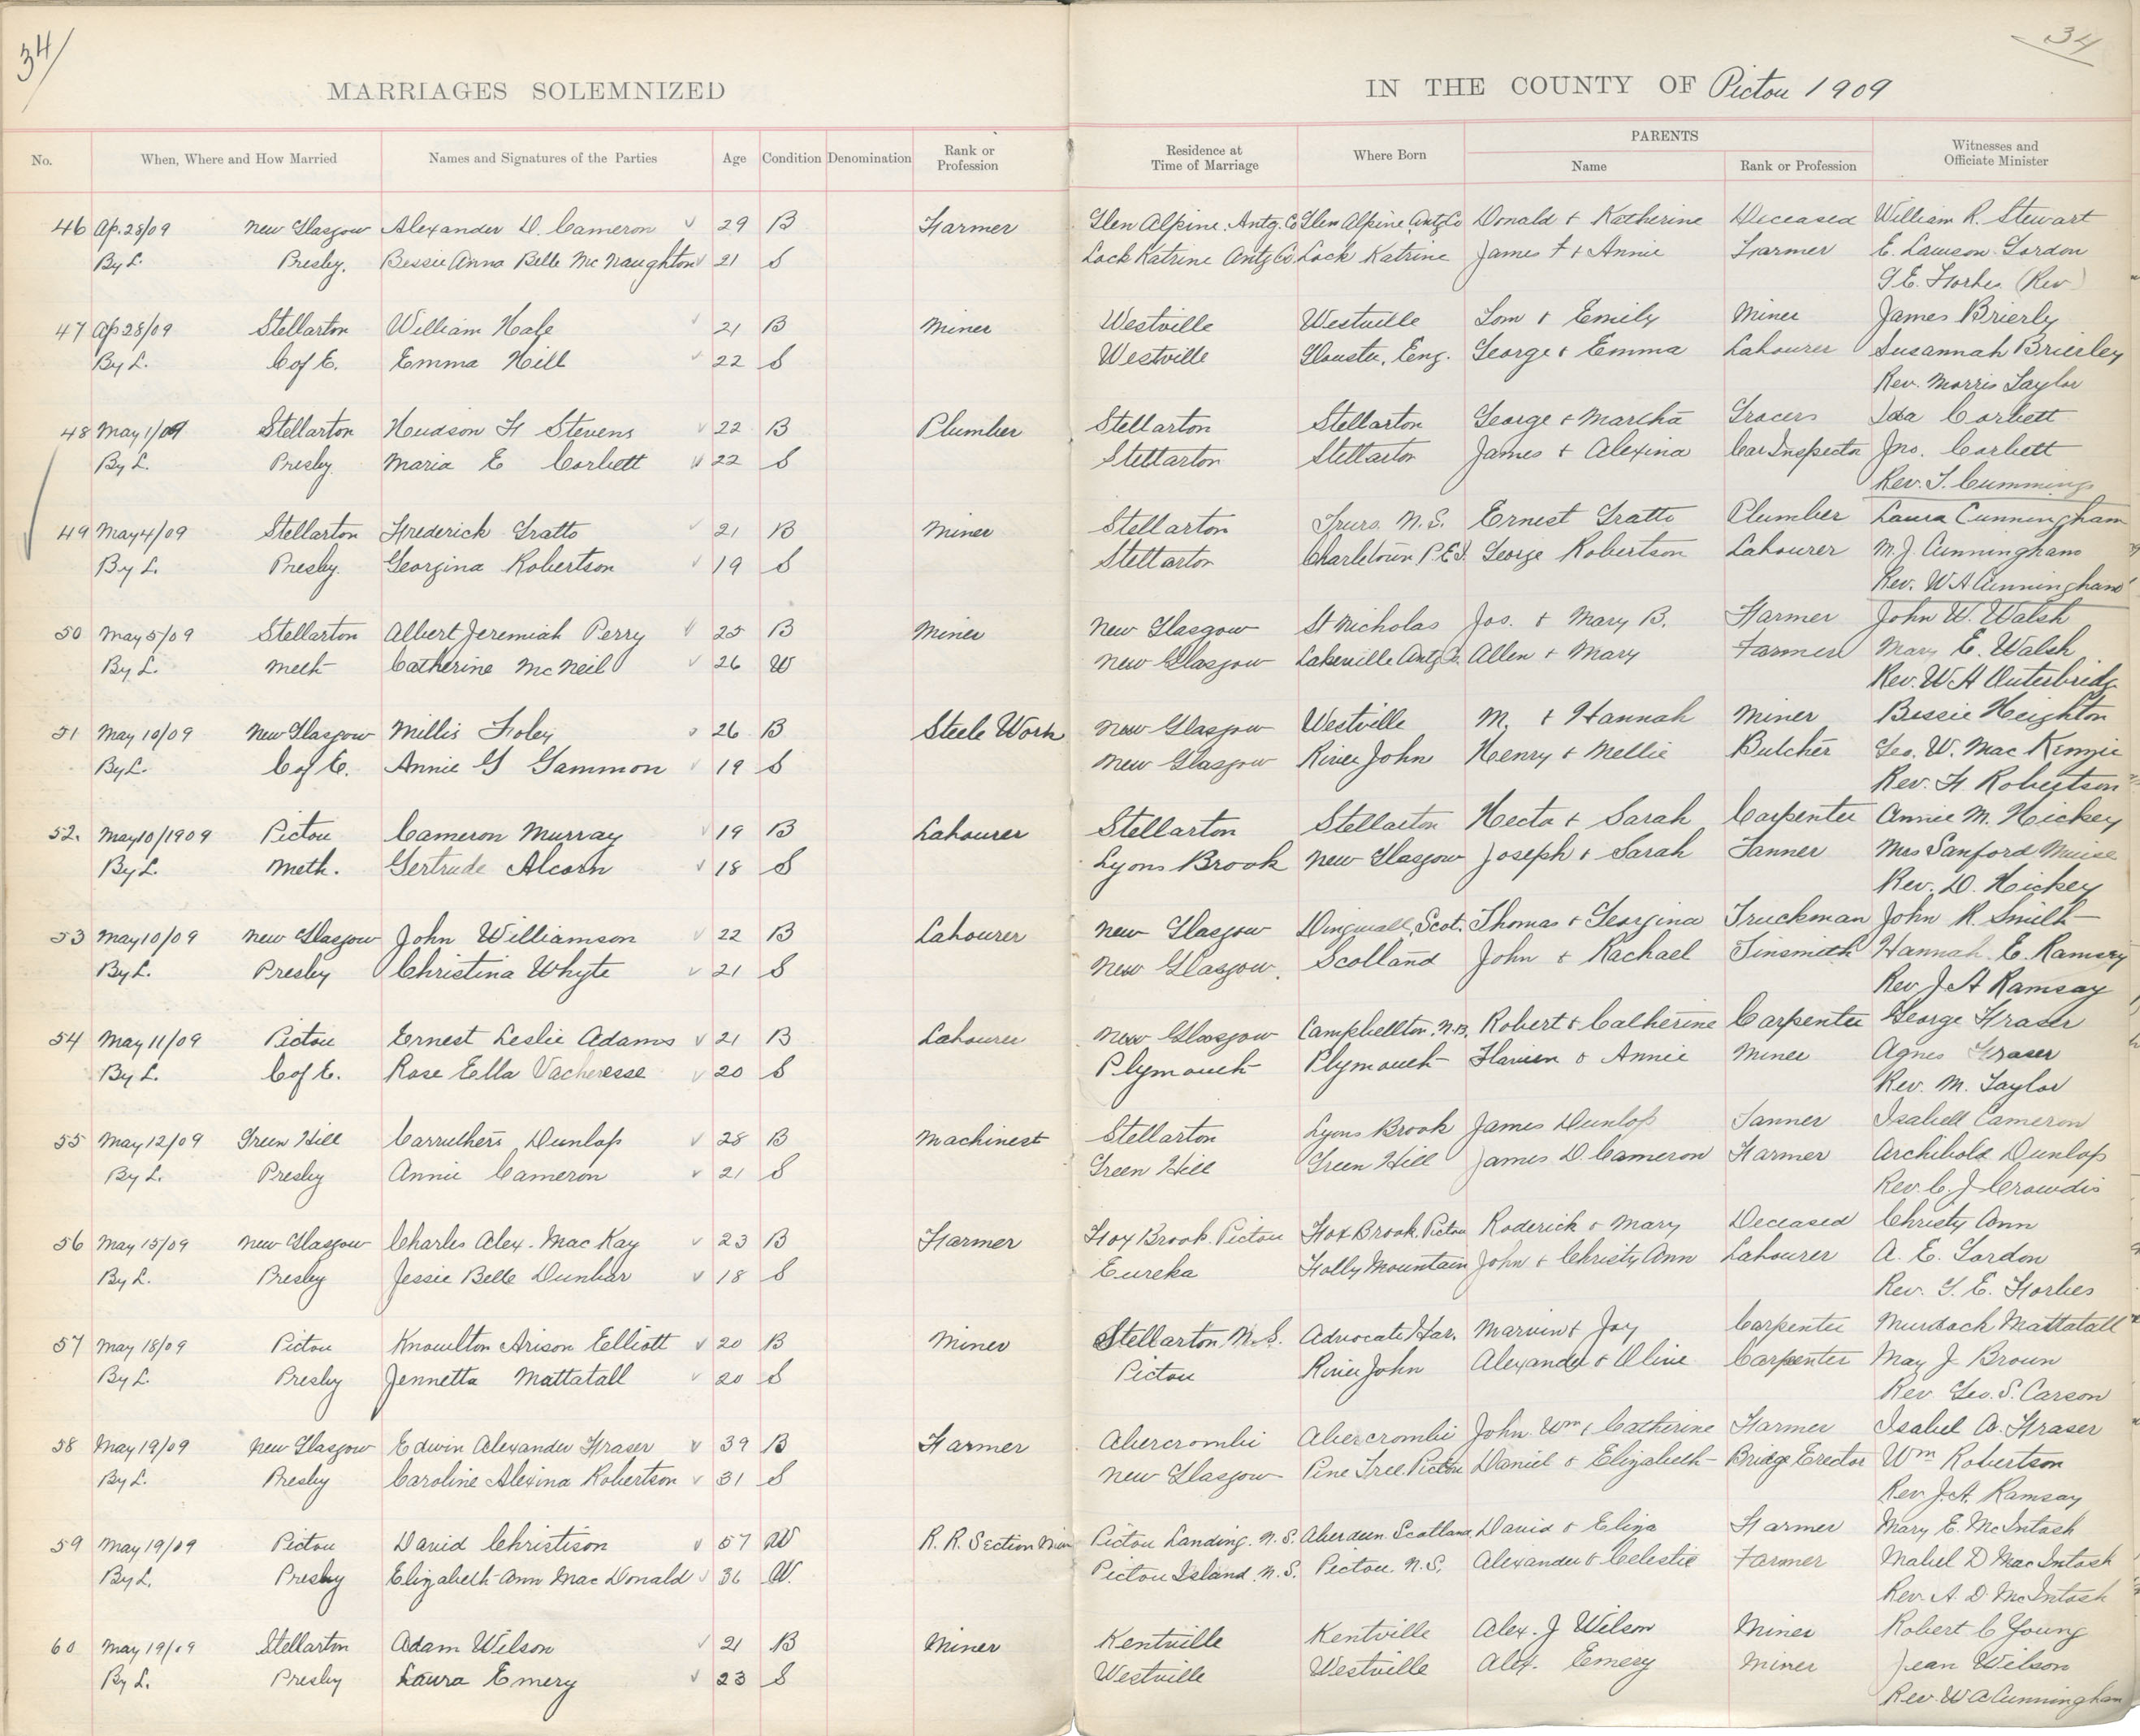 34/
34
MARRIAGES SOLEMNIZED IN THE COUNTY OF Pictou 1909
No. When, Where and How Married Names and Signatures of the Parties Age Condition Denomination Rank or Profession Residence at Time of Marriage Where Born PARENTS Name Rank or Profession Witnesses and Officiate Minister
46 Ap. 28/09 New Glasgow Alexander D. Cameron 29 B Farmer Glen Alpine. Antg. Co Glen Alpine, Antg Co Donald & Katherine Deceased William R. Stewart
By L. Presby. Bessie Anna Belle McNaughton 21 S Lock Katrine Antg Co. Lock Katrine James & Annie Farmer E. Lawson Gordon
G E. Forbes (Rev)
47 Ap 28/09 Stellarton William Hale 21 B Miner Westville Westville Tom & Emily Miner James Brierly
By L. C of E. Emma Hill 22 S Westville Glouster, Eng. George & Emma Labourer Susannah Brierley
Rev. Morris Taylor
48 May 1/09 Stellarton Hudson H Stevens 22 B Plumber Stellarton Stellarton George & Martha Grocers Ida Corbett
By L. Presby. Maria E Corbett 22 S Stellarton Stellarton James & Alexina Car Inspector Jno. Corbett
Rev. T. Cummings
49 May 4/09 Stellarton Frederick Gratto 21 B Miner Stellarton Truro. N.S. Ernest Gratto Plumber Laura Cunningham
By L. Presby. Georgina Robertson 19 S Stellarton Charletown P.E.I. George Robertson Labourer M.J. Cunningham
Rev. W A Cunningham
50 May 5/09 Stellarton Albert Jeremiah Perry 25 B Miner New Glasgow St Nicholas Jos. & Mary B. Farmer John W. Walsh
By L. Meth Catherine McNeil 26 W New Glasgow Lakeville Antg Co. Allen & Mary Farmer Mary E. Walsh
Rev. W H Outerbridge
51 May 10/09 New Glasgow Millis Foley 26 B Steele Work New Glasgow Westville M. & Hannah Miner Bessie Heighton
By L. C of E. Annie G Gammon 19 S New Glasgow River John Henry & Mellie Butcher Geo. W. MacKenzie
Rev. H Robertson
52. May 10/1909 Pictou Cameron Murray 19 B Labourer Stellarton Stellarton Hecta & Sarah Carpenter Annie M. Hickey
By L. Meth. Gertrude Alcorn 18 S Lyons Brook New Glasgow Joseph & Sarah Tanner Mrs Sanford Muise
Rev. D. Hickey
53 May 10/09 New Glasgow John Williamson 22 B Labourer New Glasgow Dingwall, Scot. Thomas & Georgina Truckman John R. Smith
By L. Presby Christina Whyte 21 S New Glasgow. Scotland John & Rachael Tinsmith Hannah E. Ramsey
Rev J A Ramsay
54 May 11/09 Pictou Ernest Leslie Adams 21 B Labourer New Glasgow Campbellton. N.B. Robert & Catherine Carpenter George Fraser
By L. C of E. Rose Ella Vacheresse 20 S Plymouth Plymouth & Annie Miner Agnes Fraser
Rev. M. Taylor
55 May 12/09 Green Hill Carruthers Dunlop 28 B Machinest Stellarton Lyons Brook James Dunlop Tanner Isabell Cameron
By L. Presby Annie Cameron 21 S Green Hill Green Hill James D Cameron Farmer Archibold Dunlop
Rev. C. J Crowdis
56 May 15/09 New Glasgow Charles Alex. MacKay 23 B Farmer Fox Brook. Pictou Fox Brook, Pictou Roderick & Mary Deceased Christy Ann
By L. Presby Jessie Belle Dunbar 18 S Eureka Folly Mountain John & Christy Ann Labourer A. E. Gordon
Rev. G. E. Forbes
57 May 18/09 Pictou Knowlton Arison Elliott 20 B Miner Stellarton, N.S. Advocate Har. Marvin & Joy Carpenter Murdock Mattatall
By L. Presby Jennetta Mattatall 20 S Pictou River John Alexander & Olive Carpenter May J Brown
Rev. Geo. S. Carson
58 May 19/09 New Glasgow Edwin Alexander Fraser 39 B Farmer Abercrombi Abercrombi John Wm & Catherine Farmer Isabel A. Fraser
By L. Presby Caroline Alexina Robertson 31 S New Glasgow Pine Tree, Pictou Daniel & Elizabeth Bridge Erector Wm Robertson
Rev. J.A. Ramsay
59 May 19/09 Pictou David Christison 57 W R. R. Section Man Pictou Landing. N.S. Aberdeen Scotland, David & Eliza Farmer Mary E. McIntosh
By L. Presby Elizabeth Ann MacDonald 36 W. Pictou Island. N.S. Pictou. N.S. Alexander & Celestie Farmer Mabel D MacIntosh
Rev. A. D. McIntosh
60 May 19/09 Stellarton Adam Wilson 21 B Miner Kentville Kentville Alex. J Wilson Miner Robert C Young
By L. Presby Laura Emery 23 S Westville Westville Alex. Emery Miner Jean Wilson
Rev. W A Cunningham